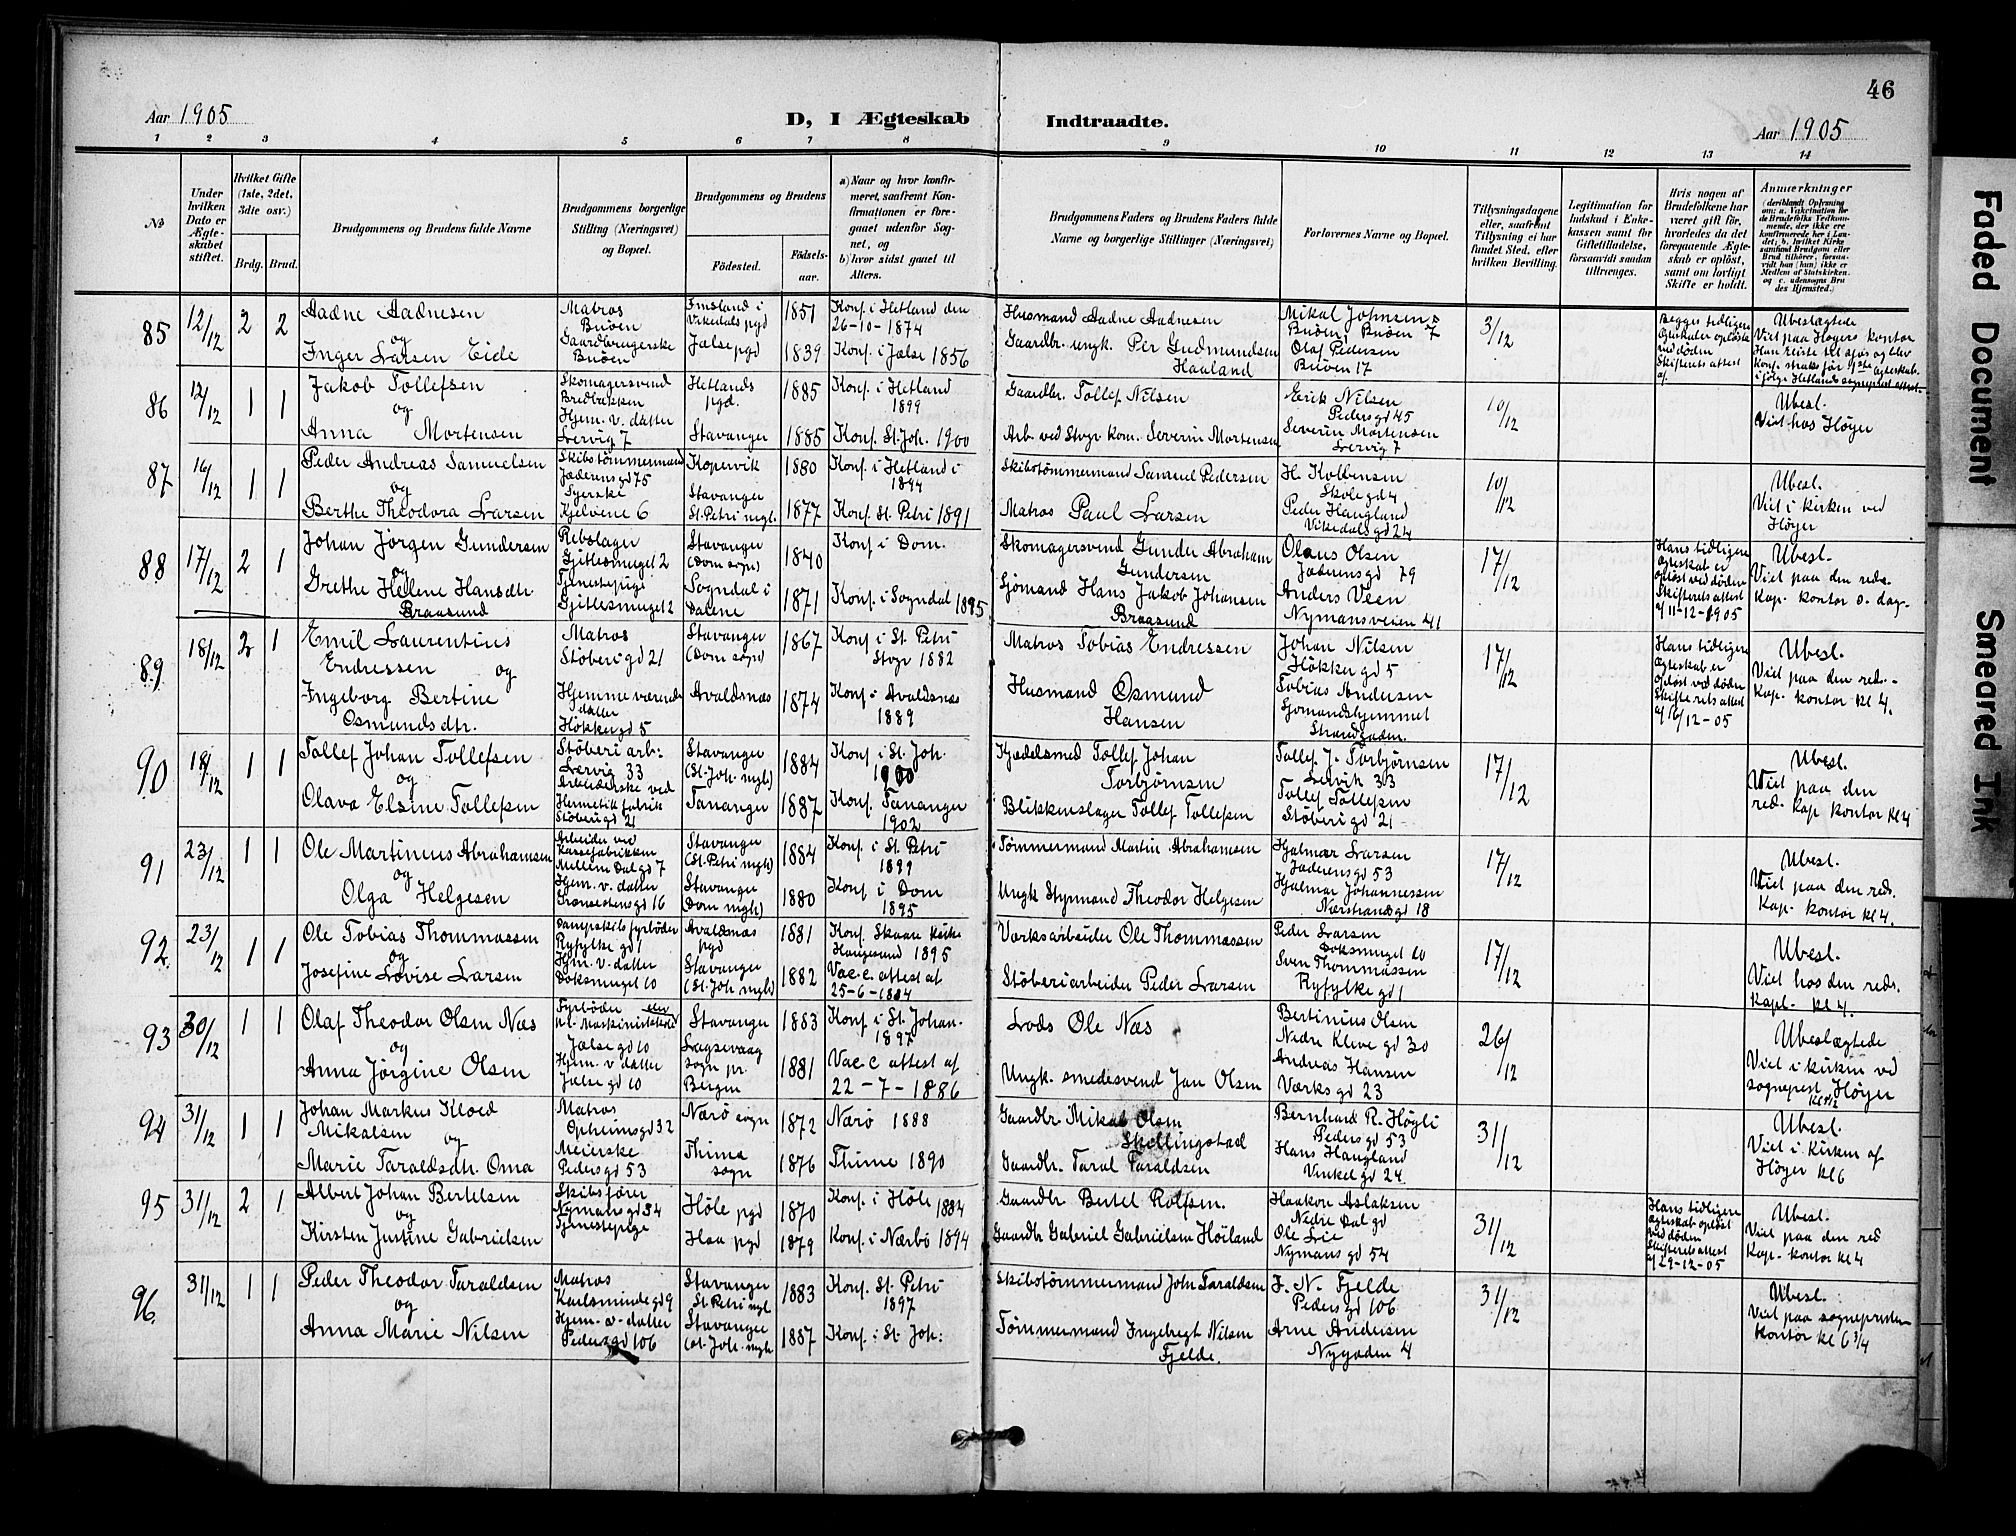 46
Aar 1905
D, I Ægteskab Indtraadte.
Aar 1905
1 2 3 4 5 6 7 8 9 10 11 12 13 14
No
Under hvilken Dato er Ægteskabet stiftet.
Hvilket Gifte (1ste, 2det, 3die osv.)
Brdg. Brud.
Brudgommens og Brudens fulde Navne
Brudgommens borgerlige Stilling (Næringsvei) og Bopæl.
Brudgommens og Brudens
Födested.
Födselsaar.
a) Naar og hvor konfirmeret, saafremt Konfirmationen er foregaaet udenfor Sognet, og
b) hvor sidst gaaet til Alters.
Brudgommens Faders og Brudens Faders fulde Navne og borgerlige Stillinger (Næringsvei)
Forlovernes Navne og Bopæl.
Tillysningsdagene eller, saafremt Tillysning ei har fundet Sted, efter hvilken Bevilling.
Legitimation for Indskud i Enkekassen samt for Giftetilladelse, forsaavidt saadan tiltrænges.
Hvis nogen af Brudefolkene har været gift før, hvorledes da det foregaaende Ægteskab er oplöst, samt om lovligt Skifte er holdt.
Anmerkninger
85 12/12 2 2
Aadne Aadnesen
og
Inger Larsen Eide
Matros
Buöen
Gaardbrugerske
Buöen
Imsland i
Vikedals pgd
Jælse pgd
1851
1839
Konf i Hetland den
26-10-1874
Konf. i Jælse 1856
Husmand Aadne Aadnesen
Gaardbr. ungk. Per Gudmundsen
Haaland
Mikal Johnsen
Buöen 7
Olaf Pedersen
Buöen 17
3/12
Begges tidligere
Ægteskaber opløste
ved døden
Skifterets attest
af.
Ubeslægtede
Viet paa Høyers kontor
86 12/12 1 1
Jakob Tollefsen
og
Anna Mortensen
Skomagersvend
Bredbækken
Hjem. v. datter
Lervig 7
Hetlands
pgd.
Stavanger
1885
1885
Konf. i Hetland
1899
Konf. St. Joh. 1900
Gaardbr. Tollef Nilsen
Arb. ved Stvgr kom. Severin Mortensen
Erik Nilsen
Pedersgd 45
Severin Mortensen
Lervig 7
10/12
Ubesl.
Viet hos Höyer
87 16/12 1 1
Peder Andreas Samuelsen
og
Berthe Theodora Larsen
Skibstømmermand
Jæderensgd 75
Syerske
Kjelvene 6
Kopervik
Stavanger
St. Petri mgh.
1880
1877
Konf. i Hetland i
1894
Konf. St. Petri 1891
Skibstömmermand Samuel Pedersen
Matros Paul Larsen
H. Kolbensen
Skolegd 4
Peder Haugland
Vikedalsgd 24
10/12
Ubesl.
Viet i kirken ved
Höyer
88 17/12 2 1
Johan Jörgen Gundersen
og
Grethe Helene Hansdtr
Braasund
Rebslager
Gjitlesmuget 2
Tjenestepige
Gjitlesmuget 2
Stavanger
(Dom sogn)
Sogndal i
Dalene
1840
1871
Konf. i Dom.
Konf. i Sogndal 1895
Skomagersvend Gunder Abraham
Gundersen
Sjömand Hans Jakob Johansen
Braasund
Olaus Olsen
Jæderensgd 79
Anders Veen
Nymansveien 41
17/12
Hans tidligere
ægteskab er
opløst ved døden
Skifterets attest
af 11-12-1905
Ubesl.
Viet paa den reds.
Kap. kontor o. dag-
89 18/12 2 1
Emil Laurentius
Endressen og
Ingeborg Bertine
Osmundsdtr.
Matros
Stöberigd 21
Hjemmeværende
datter
Hökkergd 5
Stavanger
(Dom sogn)
Avaldsnæs
1867
1874
Konf. i St. Petri
Stvgr 1882
Konf. i Avaldsnæs
1889
Matros Tobias Endressen
Husmand Osmund
Hansen
Johan Nilsen
Hökkergd 5
Tobias Andersen
Sjömandshjemmet
Strandgaden
17/12
Hans tidligere
Ægteskab er
opløst ved døden
Skifterets attest
af 16/12-05
Ubesl.
Viet paa den reds.-
Kap. kontor kl 4.
90 18/12 1 1
Tollef Johan Tollefsen
og
Olava Elsine Tollefsen
Stöberi arb:
Lervig 33
Arbeiderske ved
Hermetikfabrik
Stöberigd 21
Stavanger
(St. Joh. mgh)
Tananger
1884
1887
Konf i St. Joh.
1900
Konf. Tananger
1902
Kjeddelsmed Tollef Johan
Torbjörnsen
Blikkenslager Tollef Tollefsen
Tollef J. Torbjörnsen
Lervik 33
Tollef Tollefsen
Stöberigd 21
17/12
Ubesl.
Viet paa den
red. Kap kontor kl 4
91 23/12 1 1
Ole Martinius Abrahamsen
og
Olga Helgesen
Arbeider ved
Kassefabrikken
Mellem Dalgd 7
Hjem. v. datter
16
Stavanger
(St. Petri mgh)
Stavanger
(Dom mgh)
1884
1880
Konf. i St. Petri
1899
Konf. i Dom
1895
Tömmermand Martin Abrahamsen
Ungk Styrmand Theodor Helgesen
Hjalmar Larsen
Jæderensgd 53
Hjalmar Johannessen
Nærstrandsgd 18
17/12
Ubesl.
Viet paa den reds.
Kap. kontor kl 4.
92. 23/12 1 1
Ole Tobias Thommassen
og
Josefine Lovise Larsen
Dampskibsfyrböder
Ryfylkegd 1
Hjm. v. datter
Doksmuget 10
Avaldsnæs
pgd
Stavanger
(St. Joh mgh)
1881
1882
Konf. Skaare kirke
Haugesund 1895
Vac.c. attest af
25-6-1884
Værksarbeider Ole Thommassen
Stöberiarbeider Peder Larsen
Peder Larsen
Doksmuget 10
Sven Thommassen
Ryfylkegd 1
17/12
Ubesl.
Viet hos den reds.
Kapl. kl 4.
93 30/12 1 1
Olaf Theodor Olsen Næs
og
Anna Jørgine Olsen
Fyrböder
Jælsegd 10
Hjem. v datter
Jælsegd 10
Stavanger
Laxevaag
sogn pr.
Bergen
1883
1881
Konf. i St. Johan.
1897
Vac.c attest af
22-7-1886
Lods Ole Næs
Ungk. smedesvend Jan Olsen
Bertinius Olsen
Nedre Klevegd 30
Andreas Hansen
Værksgd 23
26/12
Ubeslægtede
Viet i kirken ved
sognepest Höyer
94 31/12 1 1
Johan Markus Kloed
Mikalsen og
Marie Taraldsdtr. Oma
Matros
Opheimsgd 32
Meierske
Pedersgd 53
Nærö sogn
Thime
sogn
1872
1876
Nærö 1888
Thime 1890
Gaardbr. Mikal Olsen
Skellingstad
Gaardbr. Taral Taraldsen
Bernhard R. Høgli
Pedersgd 53
Hans Haugland
Vinkelgd 24
31/12
Ubesl.
Viet i Kirken af
Höyer kl 6
95 31/12 2 1
Albert Johan Bertelsen
og
Kirsten Justine Gabrielsen
Skibsfører
Nymansgd 54
Tjenestepige
Höle pgd
Haa pgd
1870
1879
Konf. i Höle 1884
Konf. i Nærbö 1894
Gaardbr Bertel Rolfsen.
Gaardbr Gabriel Gabrielsen Höiland
Haakon Aslaksen
Nedre Dalgd
Ole Lie
Nymansgd 54
31/12
Hans tidligere
ægteskab opløst
ved døden
Skifterets attest
af 29-12-05
Ubesl.
Viet paa den red
Kap. kontor kl 4
96. 31/12 1 1
Peder Theodor Taraldsen
og
Anna Marie Nilsen
Matros
Karlsmindegd 9
Hjem. v. datter
Pedersgd 106
Stavanger
St. Petri mgh
Stavanger
(St. Joh. mgh)
1883
1887
Konf. St. Petri
1897
Konf. i St. Joh:
Skibstömmermand John Taraldsen
Tömmermand Ingebregt Nilsen
Fjelde.
J. N. Fjelde
Pedersgd 106
Arne Andersen
Nygaden 4
31/12
Ubesl.
Viet paa sognepresten
Kontor kl 6 3/4
Faded Document
Smeared Ink